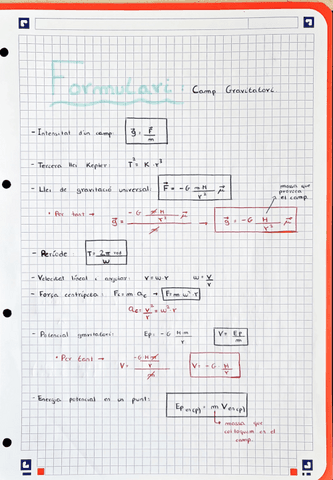 Formulari: Camp Gravitatori
- Intensitat d'un camp: g⃗ = F⃗/m
- Tercera llei Kepler: T² = K · r³
- Llei de gravitació universal: F⃗ = -G m M/r² μ⃗
massa que provoca el camp.
• Per tant → g⃗ = -G m M/r² μ⃗ / m → g⃗ = -G M/r² μ⃗
- Període: T = 2π rad/w
- Velocitat lineal i angular: v = w · r w = v/r
- Força centrípeta: Fc = m ac → F = m w² · r
ac = v²/r = w² · r
- Potencial gravitatori: Ep = -G M·m/r V = Ep/m
• Per tant → V = -G M m/r / m V = -G · M/r
- Energia potencial en un punt: Ep en (p) = m V en (p)
massa que col·loquem en el camp.